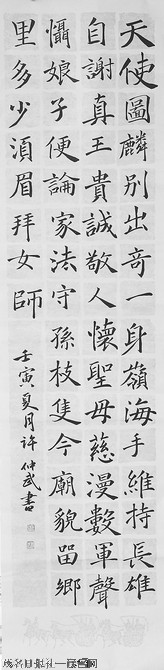 天使圖麟别出奇一身嶺海手維持長雄
自謝真王貴誠敬人懷聖母慈漫數軍聲
懾娘子便論家法守孫枝隻今廟貌畱鄉
里多少湏眉拜女師
壬寅夏月許仲武書
茂名日报社